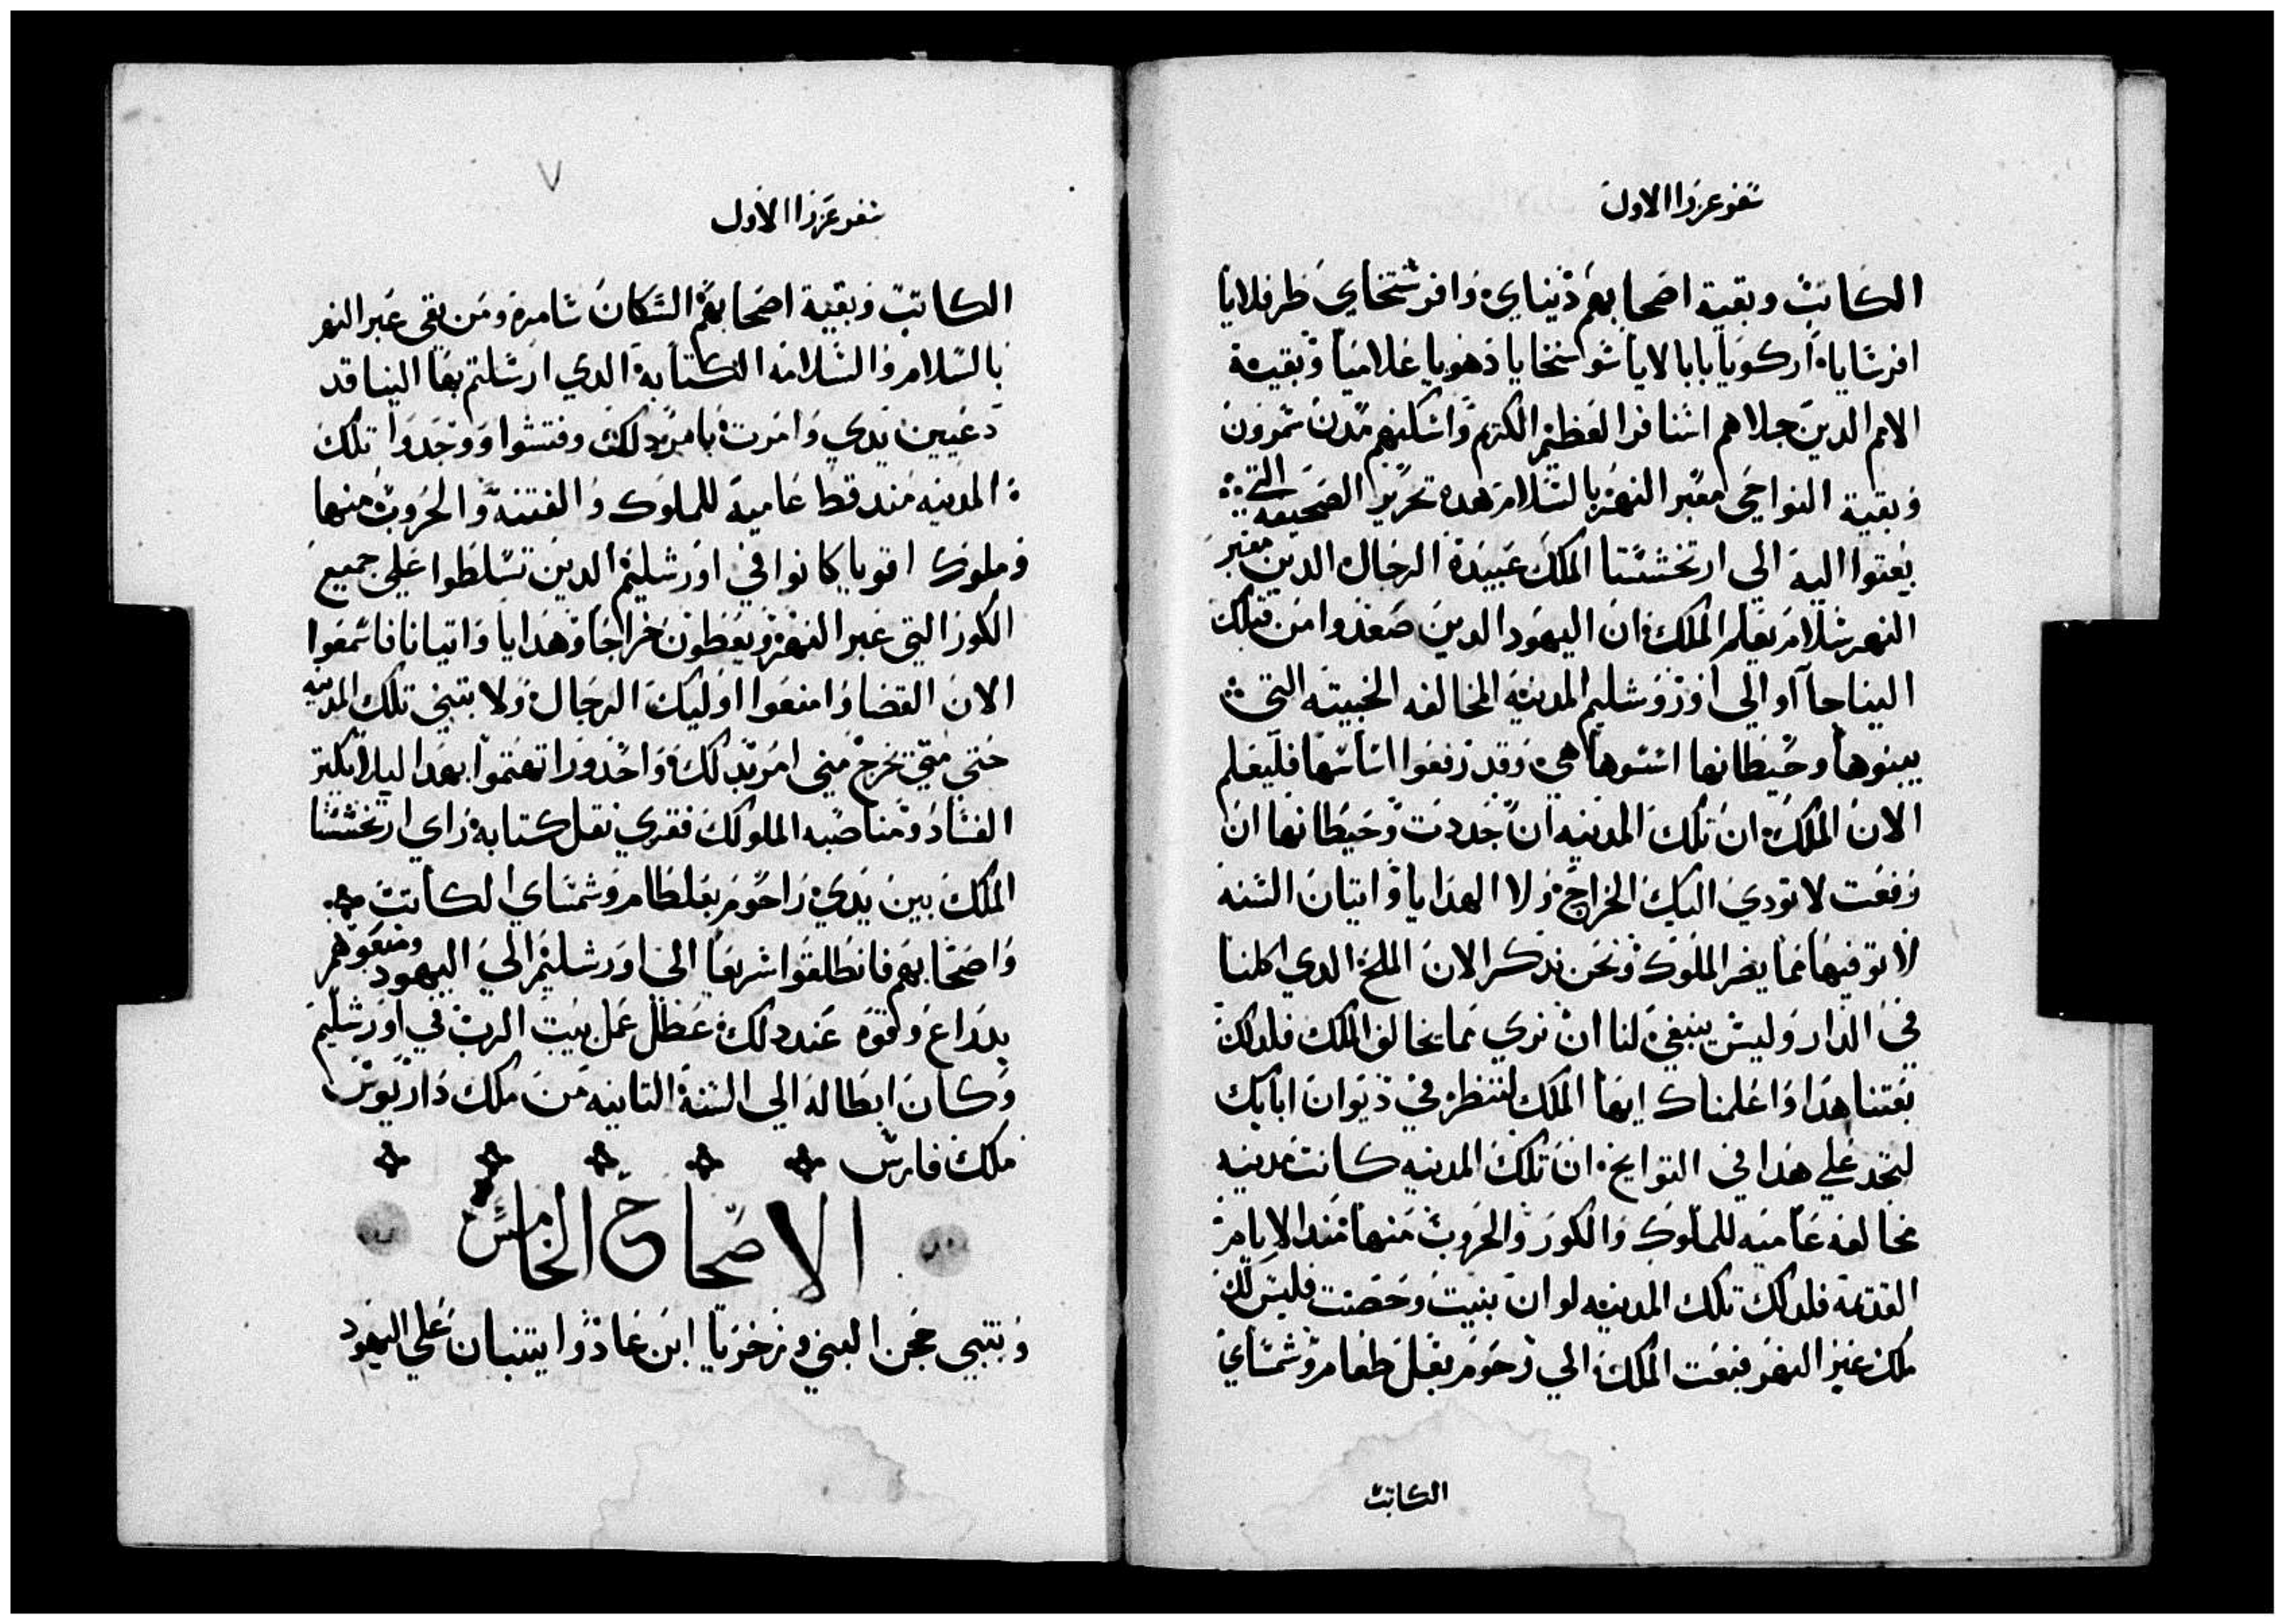 سفر عزرا الاول
الكاتب وبقية اصحابهم دنياي وافرستخاي طرفلايا
افرسايا اركويا بابالايا شوسنخايا دهويا علاميا وبقية
الامم الدين جلاهم اسنافر العظيم الكريم واسكنهم مدن شمرون
وبقية النواحي معبر النهر بالسلام هده تحرير الصحيفه التي
بعتوا اليه الي ارتخششتا الملك عبيدة الرجال الدين معبر
النهر سلام يعلم الملك ان اليهود الدين صعدوا من قبلك
الينا جاآو الي اوروشليم المدينة المخالفه الخبيته التي
يبنوها وحيطانها اسسوها هي وقد رفعوا اساسها فليعلم
الان الملك ان تلك المدينه ان جددت وحيطانها ان
رفعت لا تودي اليك الخراج ولا الهدايا واتيان السنه
لا توفيها مما يضر الملوك ونحن ندكر الان الملح الدي اكلنا
في الدار وليس ينبغي لنا ان نري مما يخالف الملك فلدلك
بعتنا هدا واعلمناك ايها الملك لتنظر في ديوان ابايك
لتجد علي هدا في التواريخ ان تلك المدينه كانت مدينه
مخالفه عاميه للملوك والكور والحروب منها مند الايام
القديمة فلدلك تلك المدينه لو ان بنيت وحصنت فليس لك
ملك عبر النهر فبعت الملك الي رحوم بعل طعام وشمساي
الكاتب
سفر عزرا الاول
الكاتب وبقية اصحابهم السكان سامرة ومن بقي عبر النهر
بالسلام والسلامه الكتابة الدي ارسلتم بها الينا قد
دعيين يدي وامرت بامر دلك وفتشوا ووجدوا تلك
المدينه مند قط عامية للملوك والفتنة والحروب منها
وملوك اقويا كانوا في اورشليم الدين تسلطوا علي جميع
الكور التي عبر النهر ويعطون خراجا وهدايا واتيانا فاسمعوا
الان القضا وامنعوا اوليك الرجال ولا بتبني تلك المدينه
حتي متي تخرج مني امر بدلك واحدورا تهتموا بهدا ليلا يكتر
الفساد ومناصبه الملولك فقري نقل كتابة راي ارتخششتا
الملك بين يدي راحوم بعلطام وشمساي الكاتب
واصحابهم فانطلقوا سريعا الي اورشليم الي اليهود ومنعوهم
بدراع وقوه عند دلك عطل عمل بيت الرب في اورشليم
وكان ابطاله الي السنة التانيه من ملك داريوس
ملك فارس
الاصحاح الخامس
وتنبي حجن النبي وزخريا ابن عادوا يتنبان علي اليهود